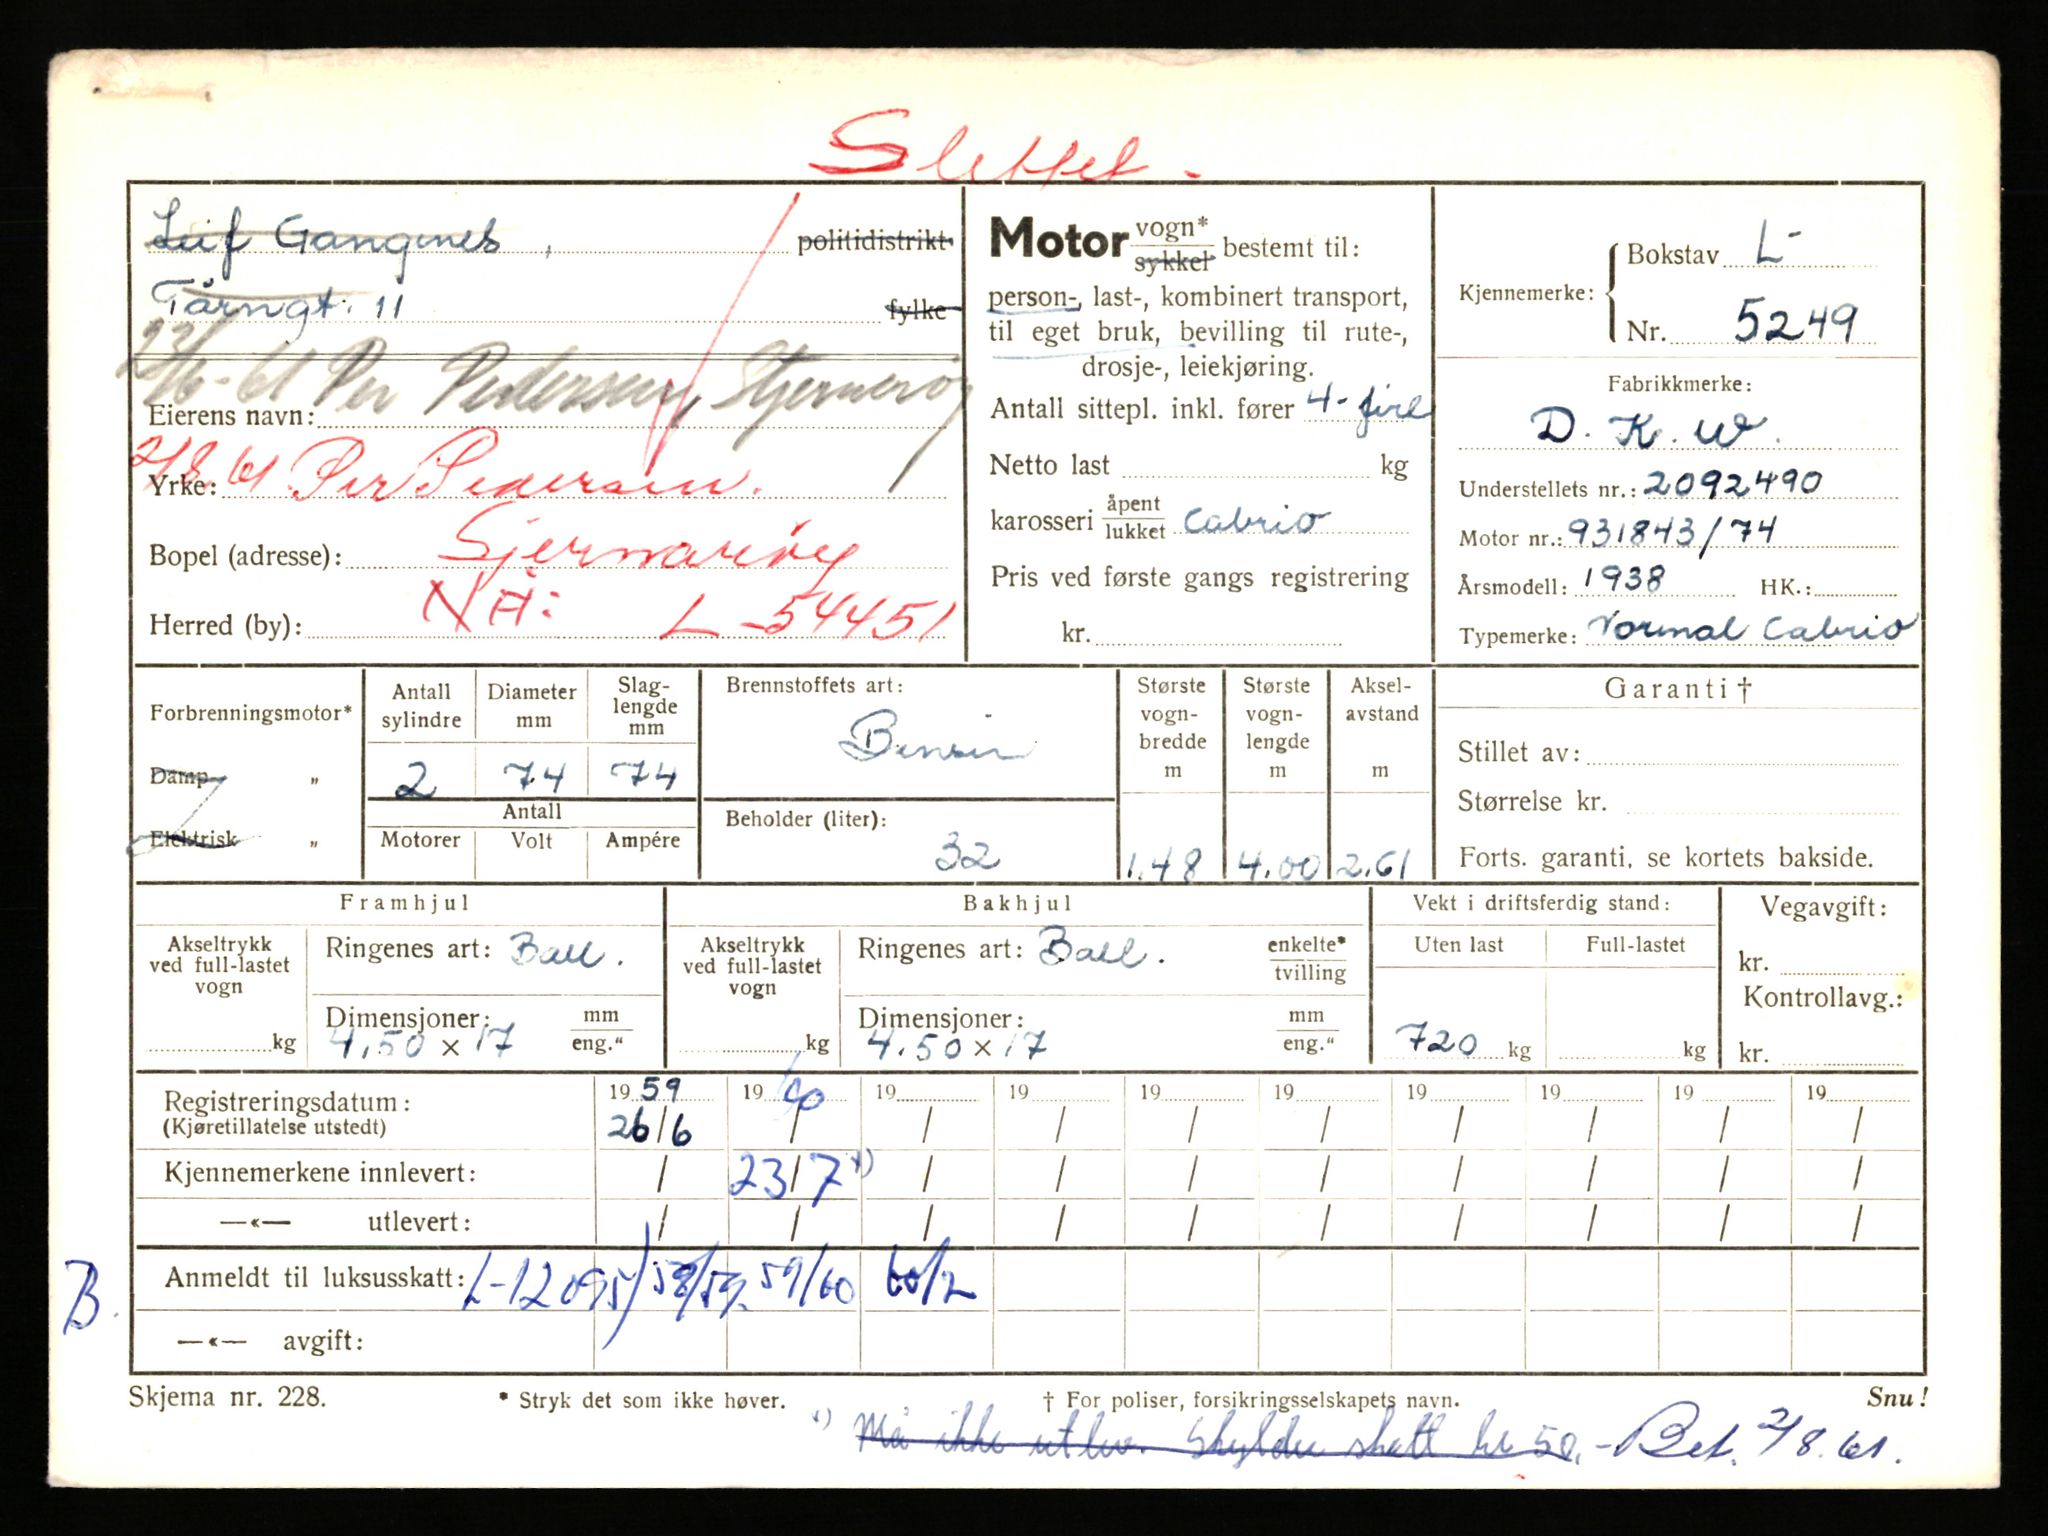 Slettet -
Leif Gangnes, politidistrikt
Tårngt. 11 fylke
23/6-61 Per Pedersen, Stjernerøy
Eierens navn:
2/8. 61 Per Pedersen.
Yrke:
Bopel (adresse): Sjernarøy
Herred (by): NÅ: L-54451
Motor vogn* sykkel bestemt til:
person-, last-, kombinert transport,
til eget bruk, bevilling til rute-,
drosje-, leiekjøring.
Antall sittepl. inkl. fører 4- fire
Netto last kg
karosseri åpent lukket cabrio
Pris ved første gangs registrering
kr.
Kjennemerke: Bokstav L-
Nr. 5249
Fabrikkmerke:
D.K.W.
Understellets nr.: 2092490
Motor nr.: 931843/74
Årsmodell: 1938 HK.:
Typemerke: Normal Cabrio
Forbrenningsmotor*
Damp „
Elektrisk „
Antall sylindre Diameter mm Slaglengde mm
2 74 74
Antall
Motorer Volt Ampére
Brennstoffets art:
Bensin
Beholder (liter):
32
Største vognbredde m 1.48
Største vognlengde m 4.00
Akselavstand m 2.61
Garanti †
Stillet av:
Størrelse kr.
Forts. garanti, se kortets bakside.
Framhjul
Akseltrykk ved full-lastet vogn kg
Ringenes art: Ball.
Dimensjoner: mm eng."
4.50 x 17
Bakhjul
Akseltrykk ved full-lastet vogn kg
Ringenes art: Ball. enkelte* tvilling
Dimensjoner: mm eng."
4.50 x 17
Vekt i driftsferdig stand:
Uten last Full-lastet
720 kg kg
Vegavgift:
kr.
Kontrollavg.:
kr.
Registreringsdatum: 19 59 19 60 19 19 19 19 19 19 19 19
(Kjøretillatelse utstedt) 26/6 / / / / / / / / /
Kjennemerkene innlevert: / 23/7 *) / / / / / / / /
—«— utlevert: / / / / / / / / / /
B. Anmeldt til luksusskatt: L-12095) 58/59. 59/60 60/2
—«— avgift:
Skjema nr. 228. * Stryk det som ikke høver. † For poliser, forsikringsselskapets navn. Snu!
*) Må ikke utlev. Skylder skatt kr 50.- Bet. 2/8. 61.